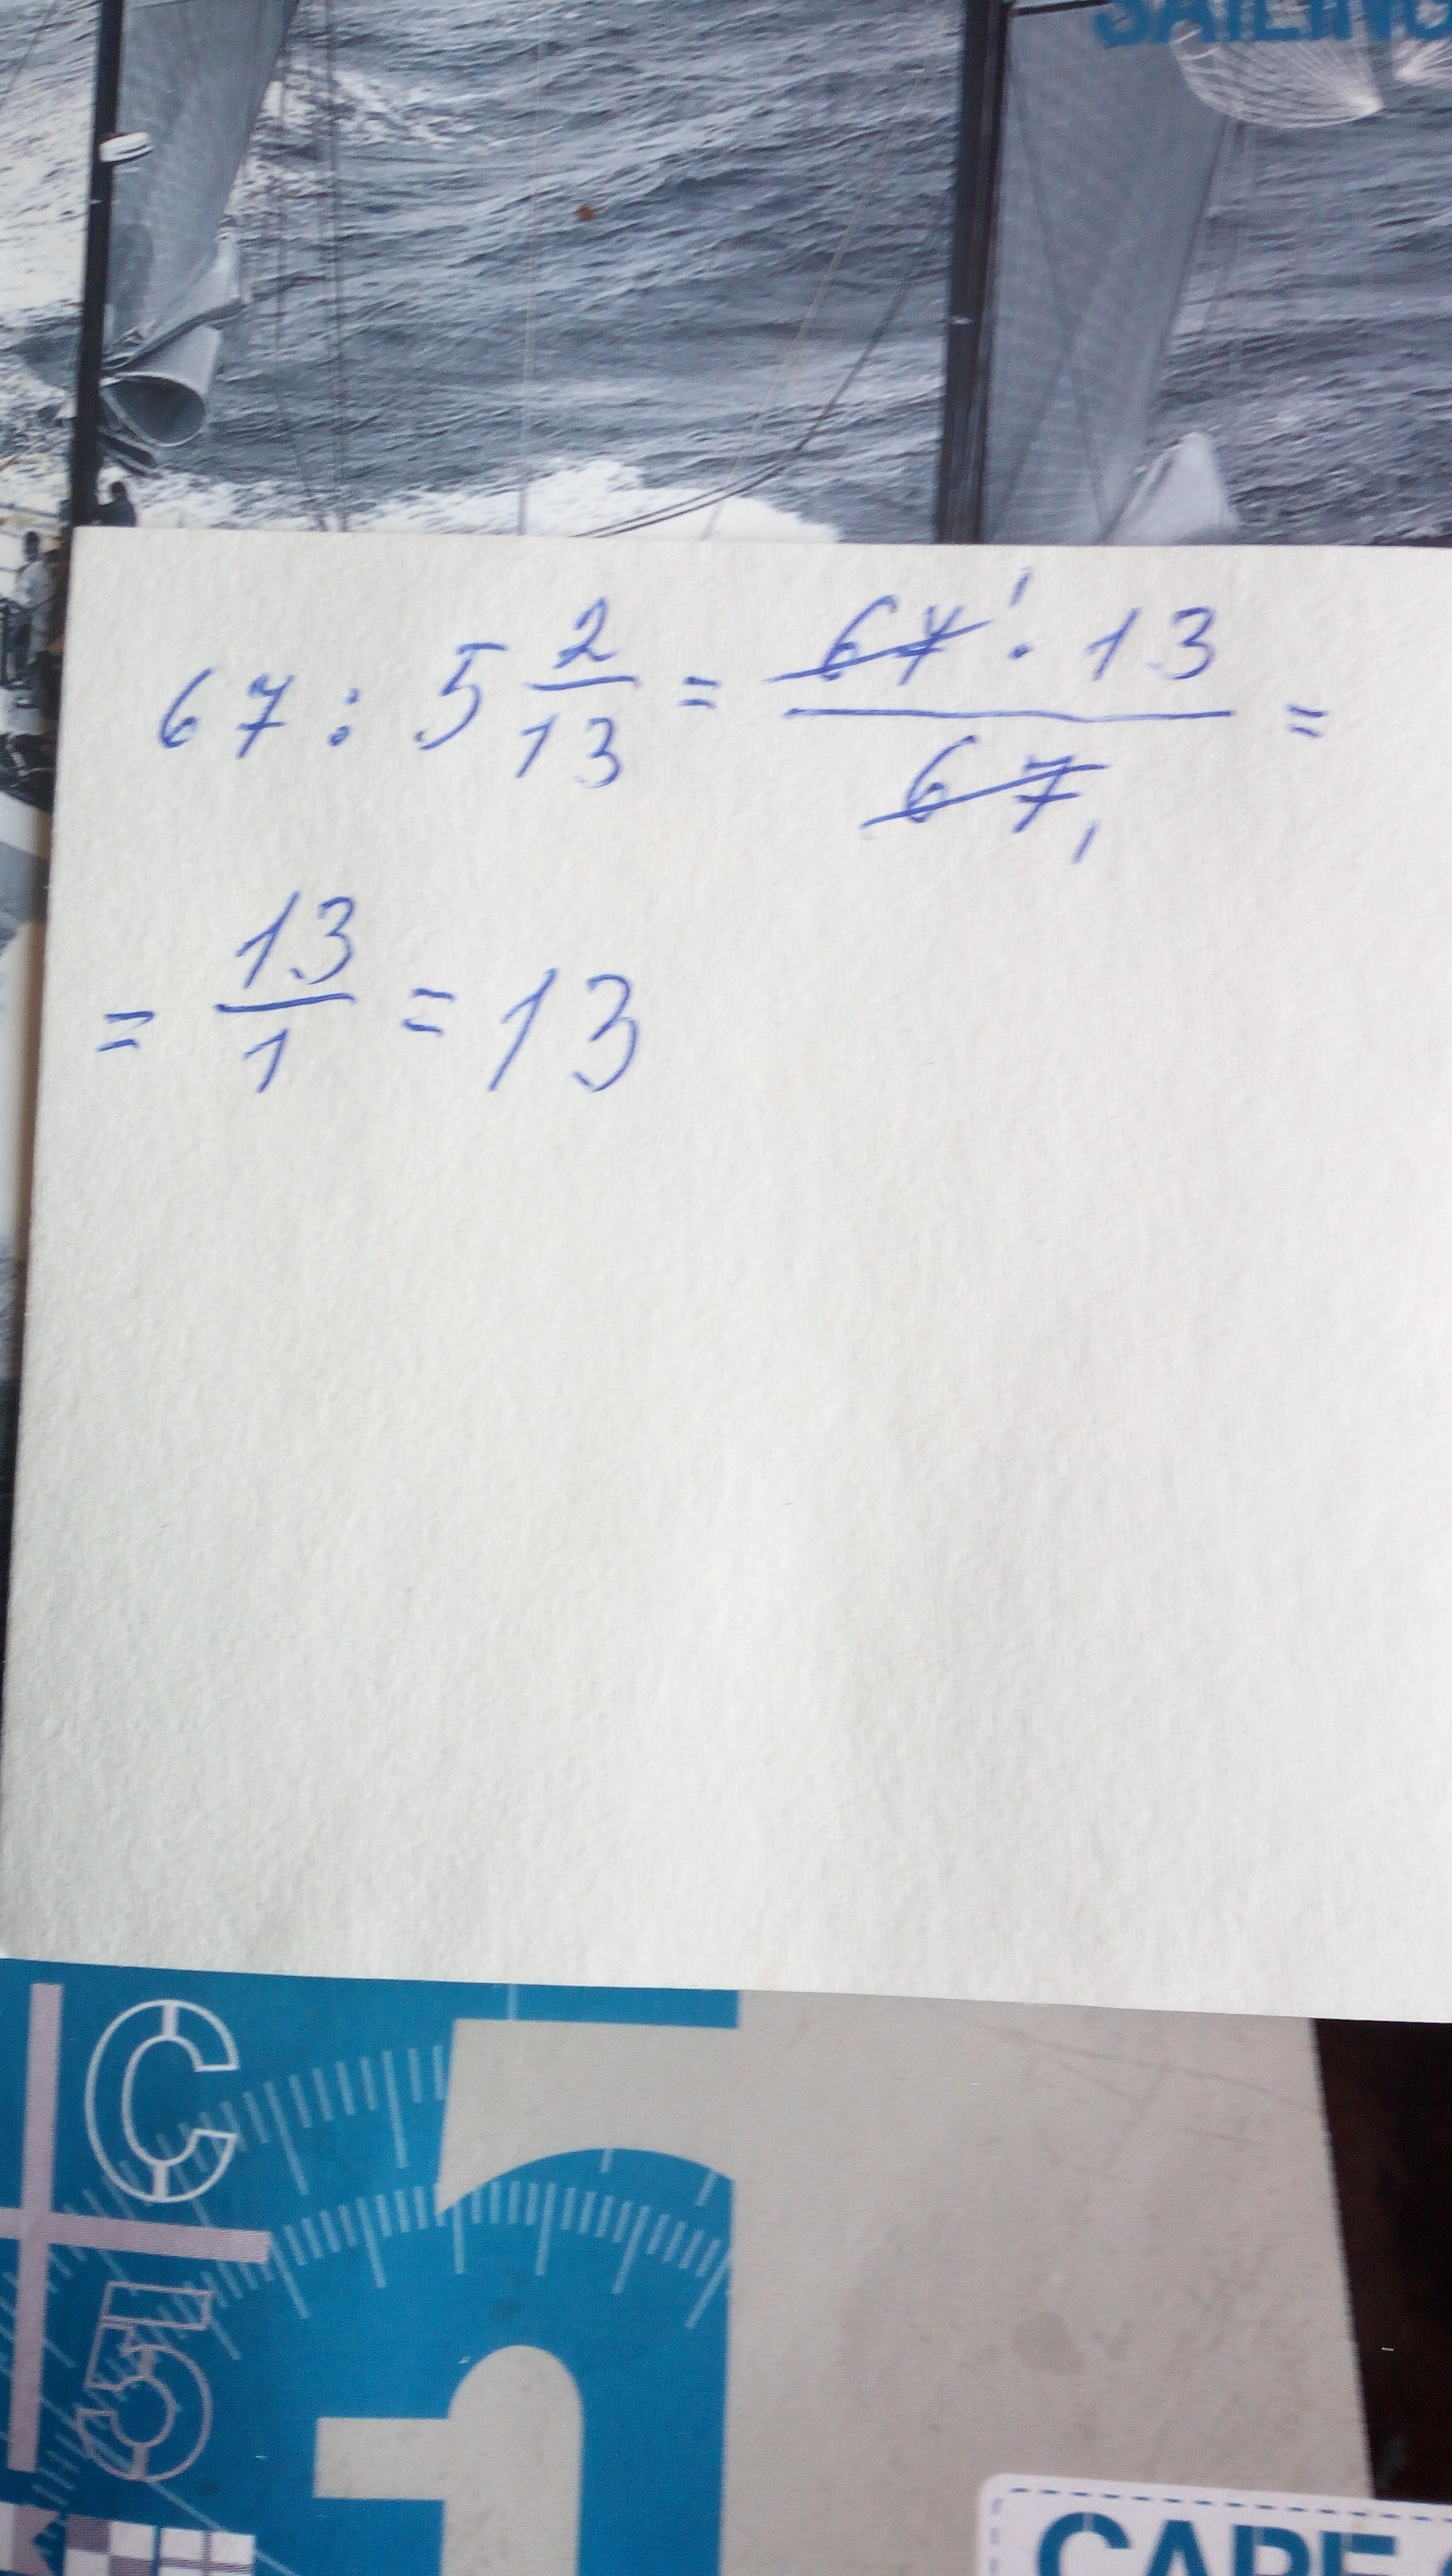 SAILING
67 : 5 2/13 = 67¹ · 13 / 67₁ =
= 13/1 = 13
C
5
5
1
CAPE